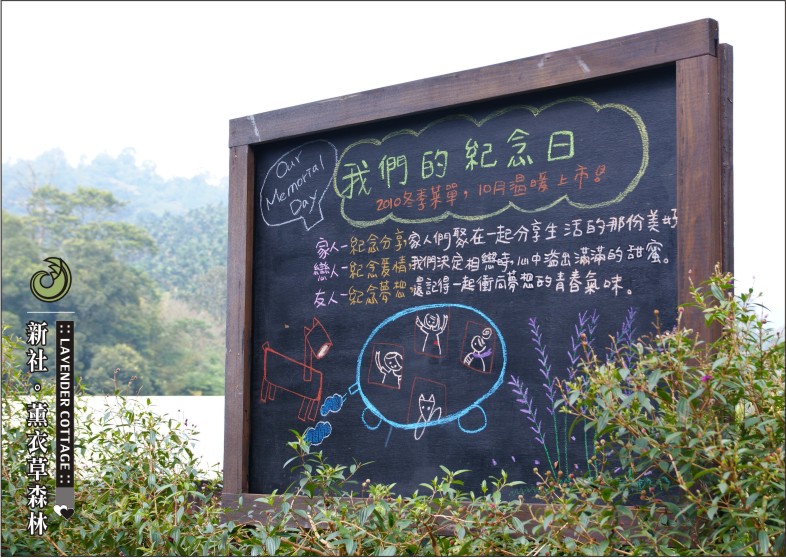 Our
Memorial
Day
我們的紀念日
2010冬季菜單，10月溫暖上市!
家人-紀念分享,家人們聚在一起分享生活的那份美好
戀人-紀念愛情,我們決定相戀時,心中溢出滿滿的甜蜜。
友人-紀念夢想,還記得一起衝向夢想的青春氣味。
新社。薰衣草森林
::LAVENDER COTTAGE::